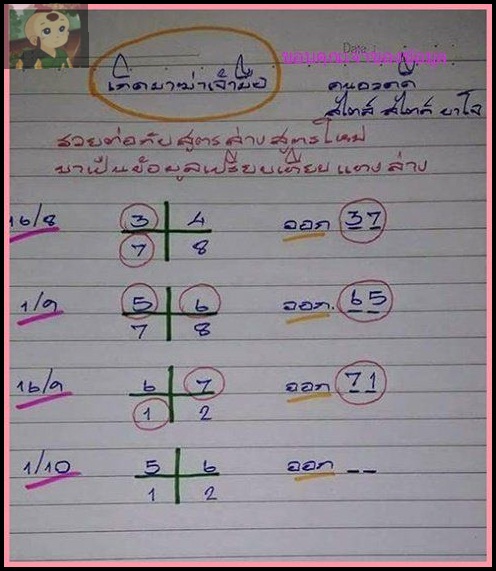 Date
ขอบคุณเจ้าของข้อมูล
เกิดมาฆ่าเจ้ามือ
คนอวดดี
สไตล์ สไตล์ ยาโจ
รวยต่อกับสูตรล่างสูตรใหม่
มาเป็นข้อมูลเปรียบเทียบแทงล่าง
16/8 3 4 ออก 37
7 8
1/9 5 6 ออก. 65
7 8
16/9 6 7 ออก 71
1 2
1/10 5 6 ออก _ _
1 2